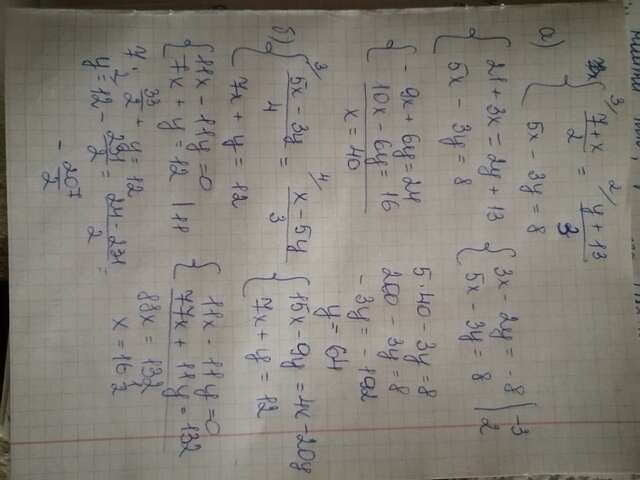 а) { 3/ (7+x)/2 = 2/ (y+13)/3
5x - 3y = 8
{ 21 + 3x = 2y + 13
5x - 3y = 8
{ 3x - 2y = -8 | -3
5x - 3y = 8 | 2
{ -9x + 6y = 24
10x - 6y = 16
x = 40
5·40 - 3y = 8
200 - 3y = 8
-3y = -192
y = 64
б) { 3/ (5x - 3y)/4 = 4/ (x - 5y)/3
7x + y = 12
{ 15x - 9y = 4x - 20y
7x + y = 12
{ 11x - 11y = 0
7x + y = 12 | 11
{ 11x - 11y = 0
77x + 11y = 132
88x = 132
7 · 33/2 + y = 12
y = 12 - 231/2 = (24 - 231)/2 =
- 207/2